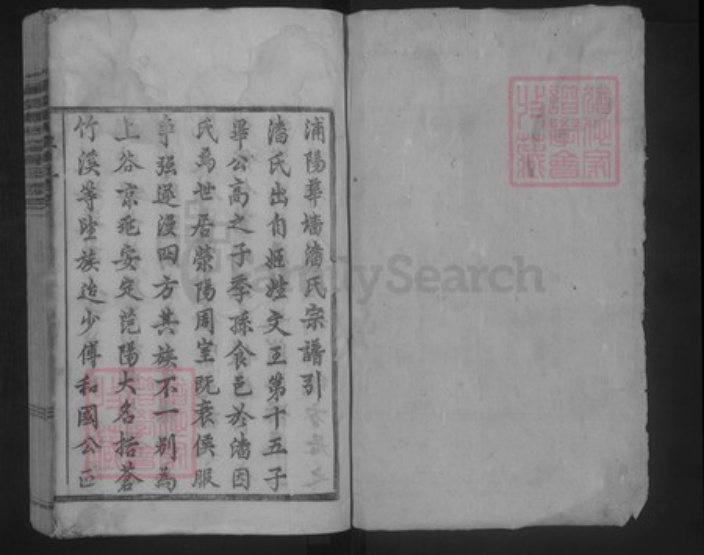 浦陽華墻潘氏宗譜引
潘氏出自姬姓文王第十五子
畢公高之子季孫食邑於潘因
氏焉世居滎陽周室既衰侯服
爭强逐漫四方其族不一別為
上谷京兆安定范陽大名括蒼
竹溪等陸族迨少傅和國公
FamilySearch